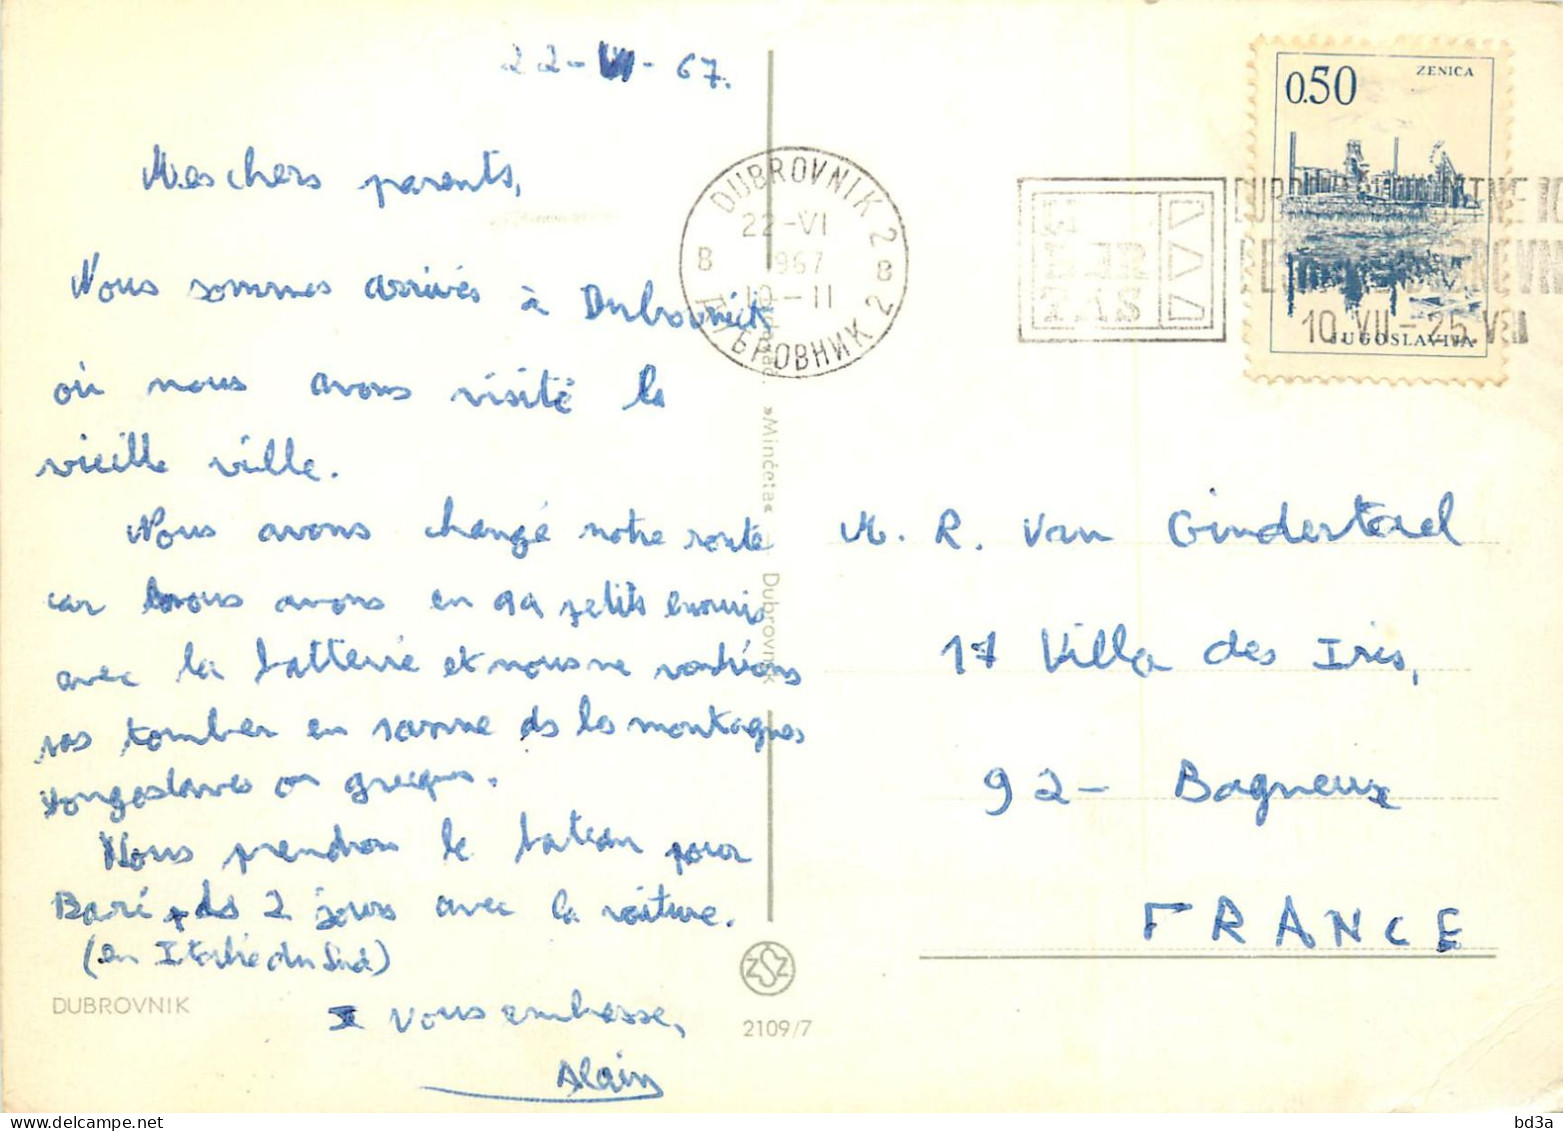 22-VI-67.
Mes chers parents,
Nous sommes arrivés à Dubrovnik
où nous avons visité la
vieille ville.
Nous avons changé notre route
car nous avons eu qq petits ennuis
avec la batterie et nous ne voudrions
pas tomber en panne ds les montagnes
Yougoslaves ou grecques.
Nous prendron le bateau pour
Bari ds 2 jours avec la voiture.
(en Italie du Sud)
Vous embrasse,
Alain
DUBROVNIK
»Minčeta« - Dubrovnik
ZSZ
2109/7
DUBROVNIK 2
22-VI
1967
10-11
8 8
ДУБРОВНИК 2
LIBERTAS
10.VII-25.VIII
0.50
ZENICA
JUGOSLAVIJA
M. R. Van Gindertael
17 Villa des Iris,
92- Bagneux
FRANCE
delcampe.net
bd3a